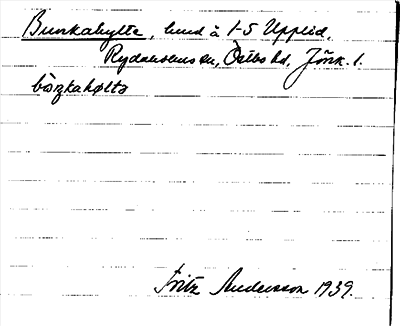 Bunkahylte, lund å 1-5 Upplid,
Rydaholms sn, Östbo hd, Jönk. l.
bòŋkahølta
Fritz Andersson 1939.